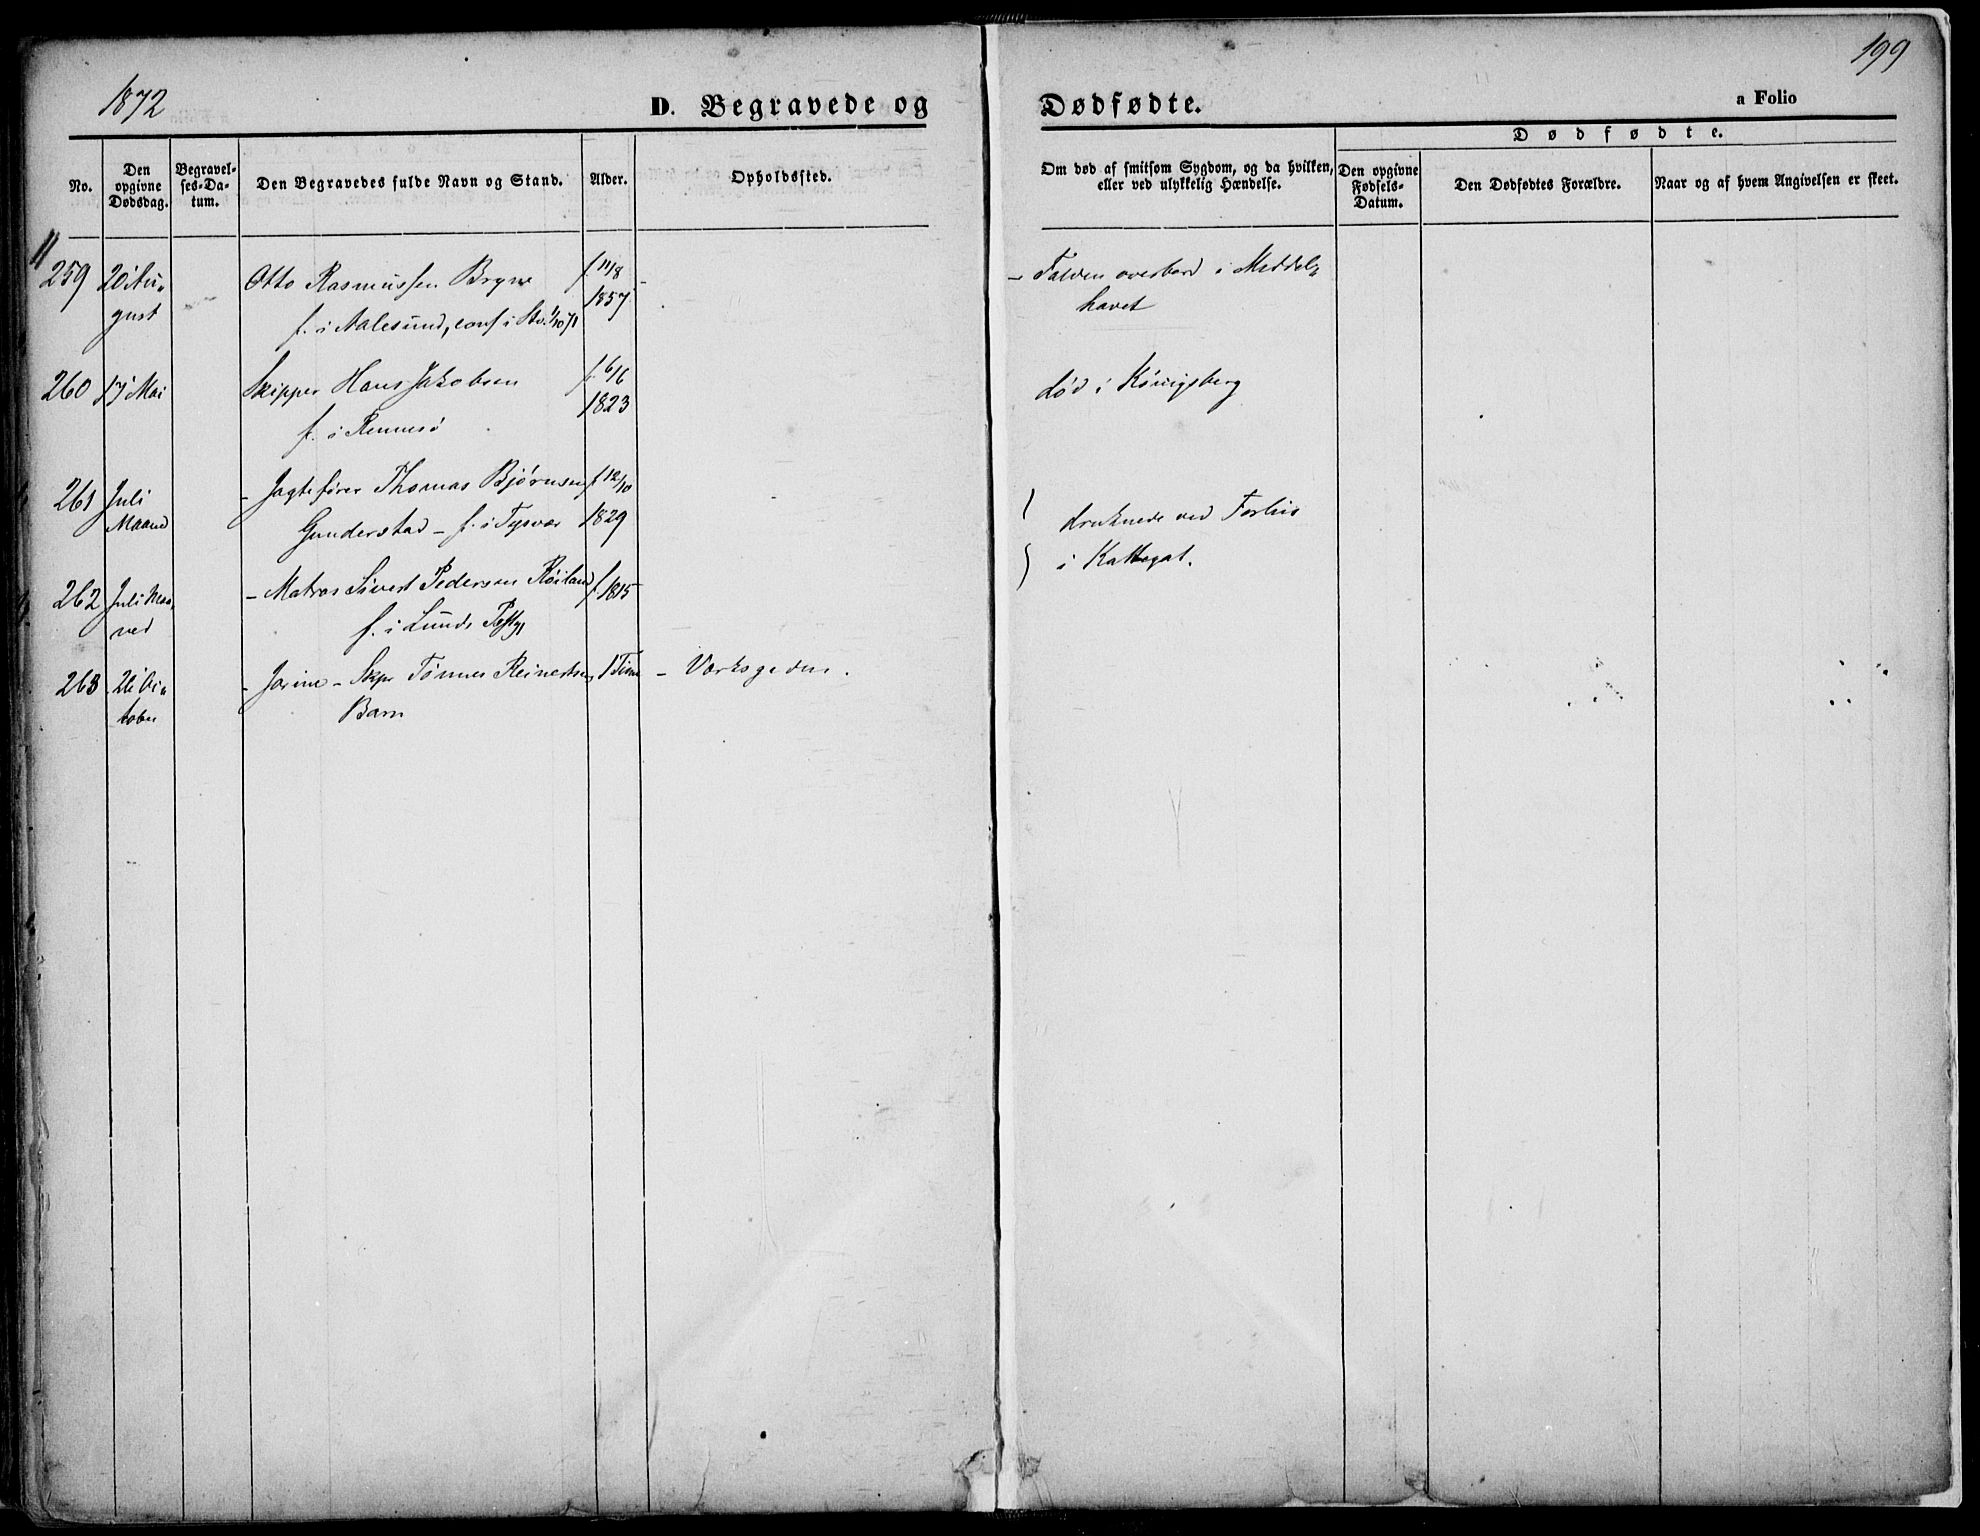 199
1872
D. Begravede og Dødfødte.
a Folio
Dødfødte.
No.
Den opgivne Dødsdag.
Begravelses-Datum.
Den Begravedes fulde Navn og Stand.
Alder.
Opholdssted.
Om død af smitsom Sygdom, og da hvilken,
eller ved ulykkelig Hændelse.
Den opgivne Fødsels-Datum.
Den Dødfødtes Forældre.
Naar og af hvem Angivelsen er skeet.
259 20 Au- Otto Rasmussen Bryne f. 11/8 - Falden overbord i Middel-
gust f. i Aalesund, conf i Stv. 1/10 71 1857 havet
260 17 Mai Skipper Hans Jakobsen f. 6/6 død i Königsberg
f. i Rennesø 1823
261 Juli - Jagtefører Thomas Bjørnsen f 12/10
Maaned Gunderstad - f. i Tysvær 1829 druknede ved
i Kattegat.
262 Juli Maa- - Matros Sivert Pedersen f 1815
ned f. i Lunde
263 - Jorine - Skpr Tønnes Reinertsens 1 Time - Værksgaden.
tober Barn